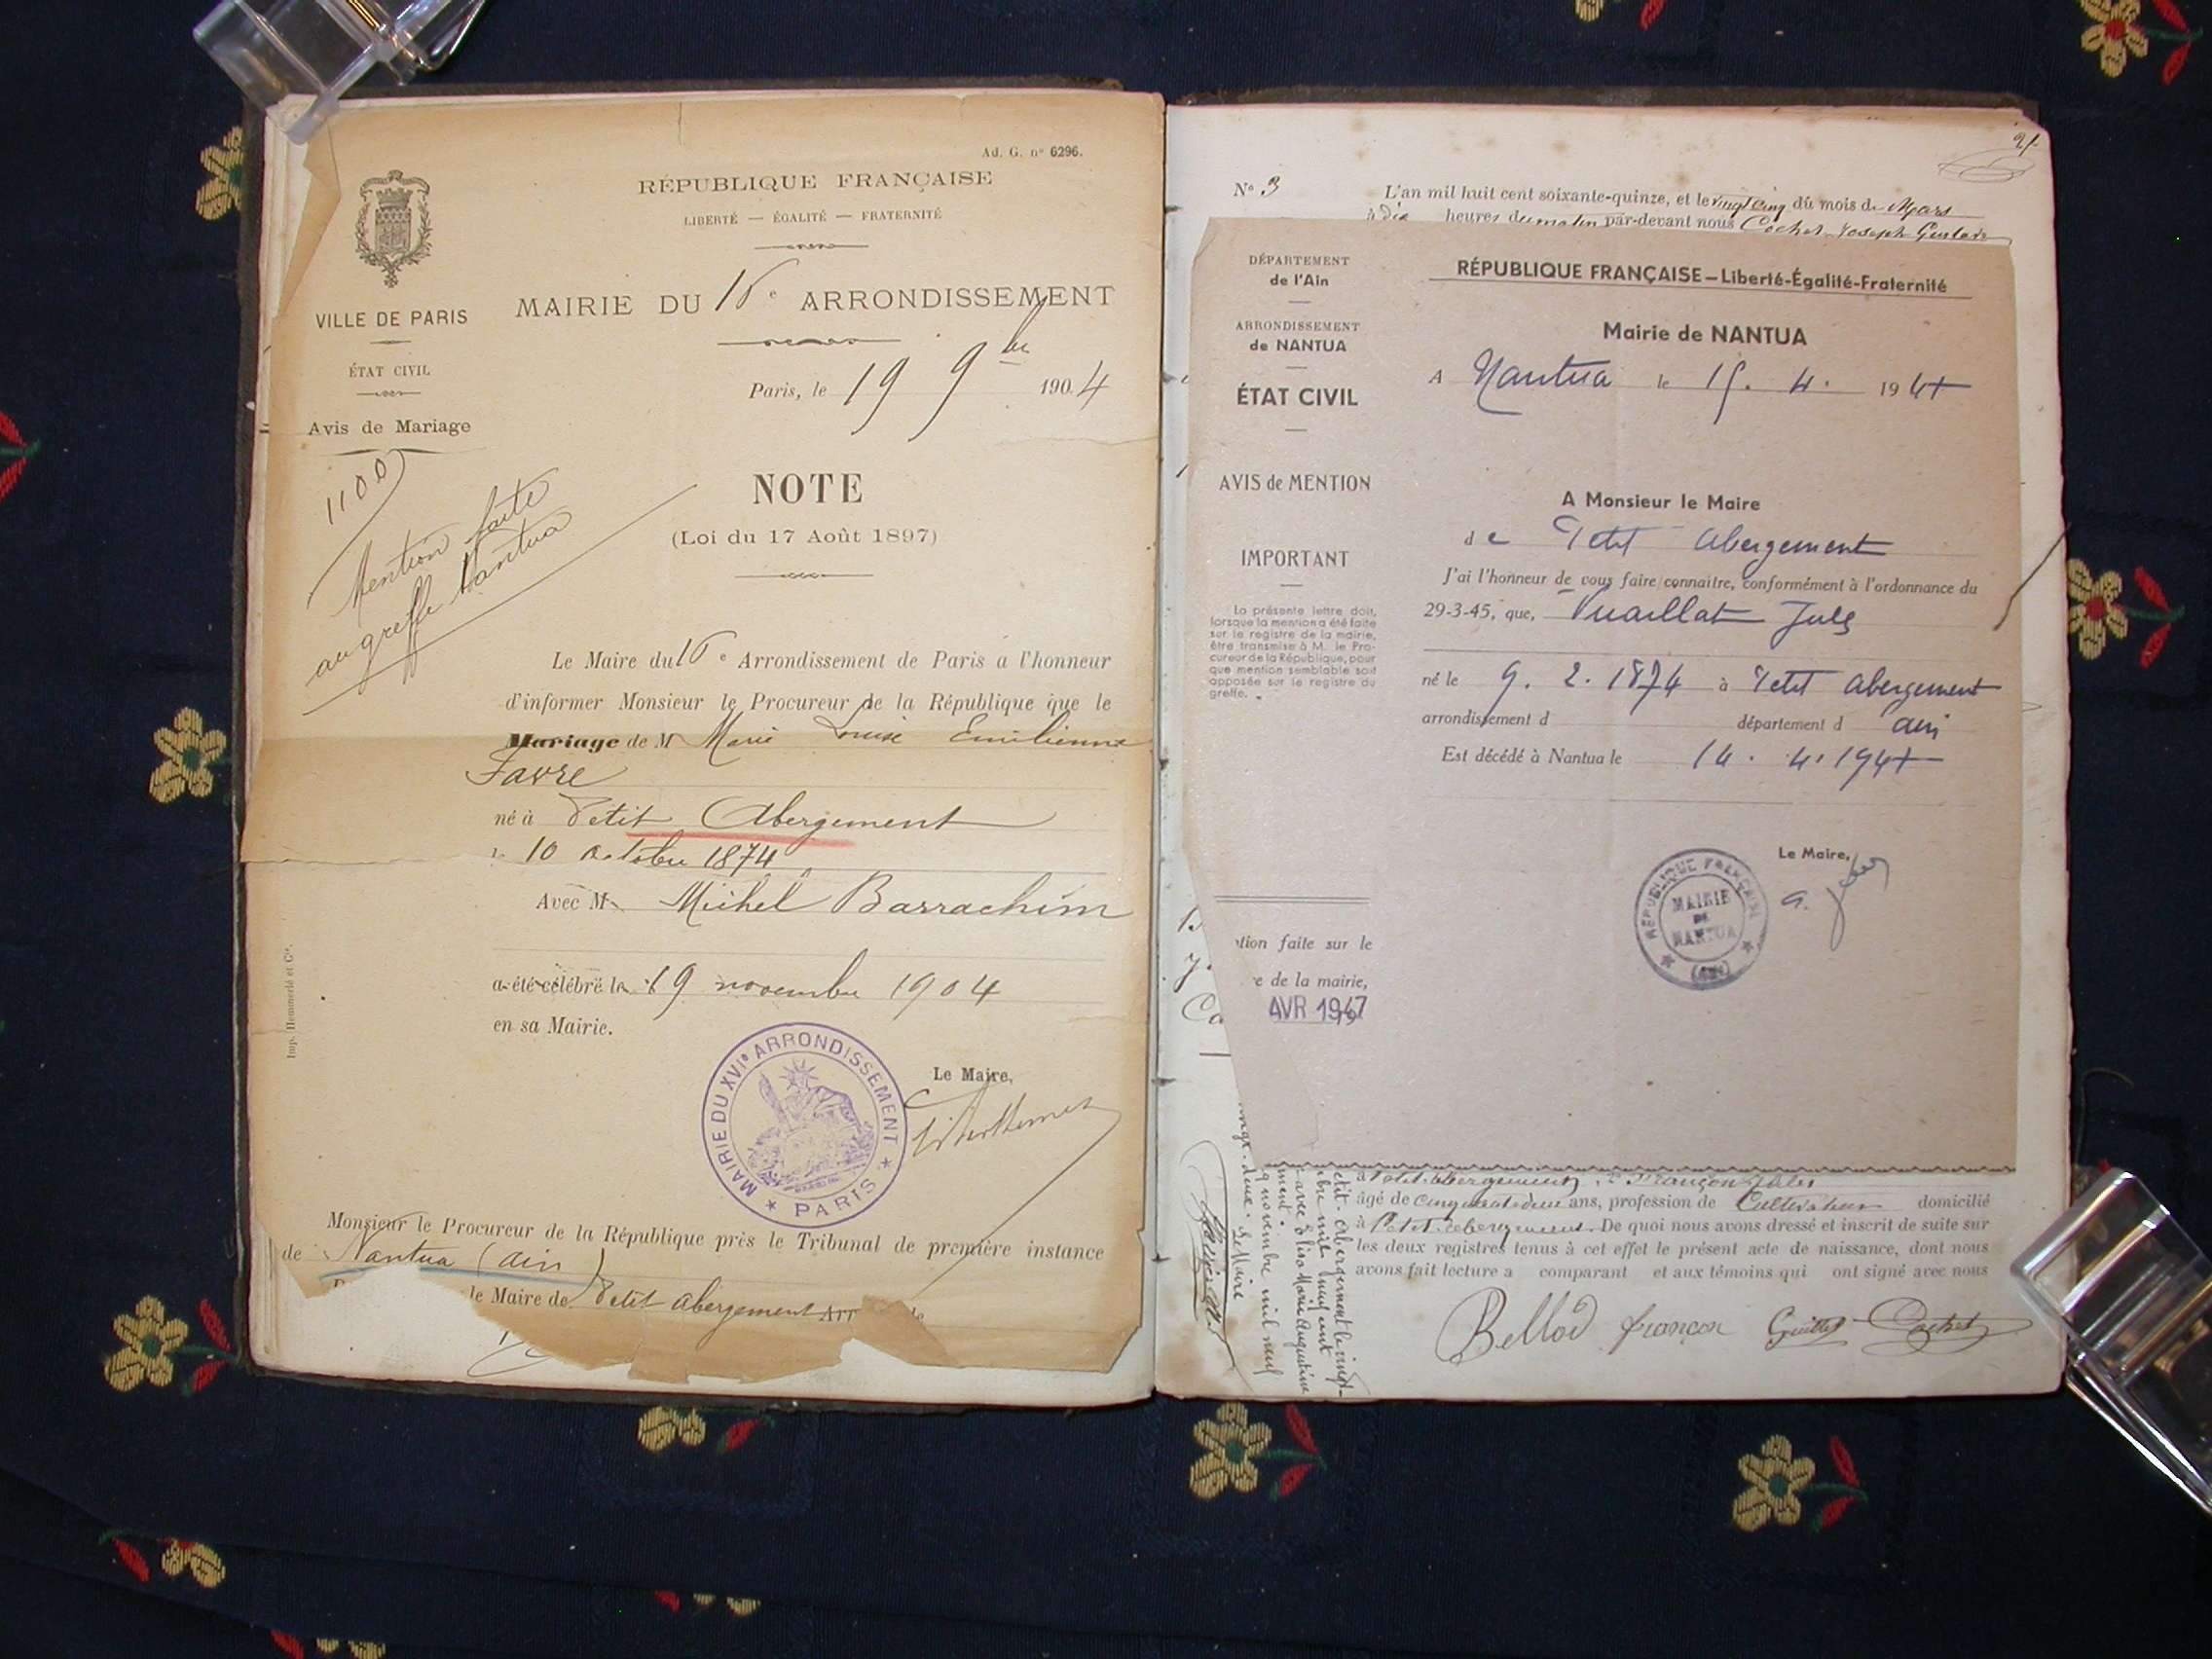 Ad. G. nº 6296.
RÉPUBLIQUE FRANÇAISE
LIBERTÉ — ÉGALITÉ — FRATERNITÉ
VILLE DE PARIS
ÉTAT CIVIL
Avis de Mariage
1100
Mention faite
au greffe Nantua
MAIRIE DU 16e ARRONDISSEMENT
Paris, le 19 9bre 1904
NOTE
(Loi du 17 Août 1897)
Le Maire du 16e Arrondissement de Paris a l'honneur
d'informer Monsieur le Procureur de la République que le
Mariage de M Marie Louise Emilienne
Favre
né à Petit Abergement
le 10 octobre 1874
Avec M Michel Barrachim
a été célébré le 19 novembre 1904
en sa Mairie.
Le Maire,
MAIRIE DU XVIe ARRONDISSEMENT
* PARIS *
Monsieur le Procureur de la République près le Tribunal de première instance
de Nantua (Ain)
le Maire de Petit Abergement
Imp. Hemmerlé et Cie.
21
Nº 3
L'an mil huit cent soixante-quinze, et le vingt cinq du mois de Mars
à dix heures du matin par-devant nous Cochet Joseph Gustave
DÉPARTEMENT
de l'Ain
ARRONDISSEMENT
de NANTUA
ÉTAT CIVIL
AVIS de MENTION
IMPORTANT
La présente lettre doit,
lorsque la mention a été faite
sur le registre de la mairie,
être transmise à M. le Pro-
cureur de la République, pour
que mention semblable soit
apposée sur le registre du
greffe.
RÉPUBLIQUE FRANÇAISE — Liberté-Égalité-Fraternité
Mairie de NANTUA
A Nantua le 15. 4. 1947
A Monsieur le Maire
de Petit Abergement
J'ai l'honneur de vous faire connaitre, conformément à l'ordonnance du
29-3-45, que, Vuaillat Jules
né le 9. 2. 1874 à Petit Abergement
arrondissement d département d Ain
Est décédé à Nantua le 14. 4. 1947
Le Maire,
RÉPUBLIQUE FRANÇAISE
MAIRIE
DE
NANTUA
* (Ain) *
tion faite sur le
e de la mairie,
AVR 1947
à Petit-Abergement, &
âgé de cinquante deux ans, profession de Cultivateur domicilié
à Petit-Abergement. De quoi nous avons dressé et inscrit de suite sur
les deux registres tenus à cet effet le présent acte de naissance, dont nous
avons fait lecture a comparant et aux témoins qui ont signé avec nous
Bellod françon Guillot Cochet
etit-Abergement le vingt-
bre mil neuf cent
avec Elisa Marie Augustine
ment.
9 novembre mil neuf
vingt-deux. Le Maire